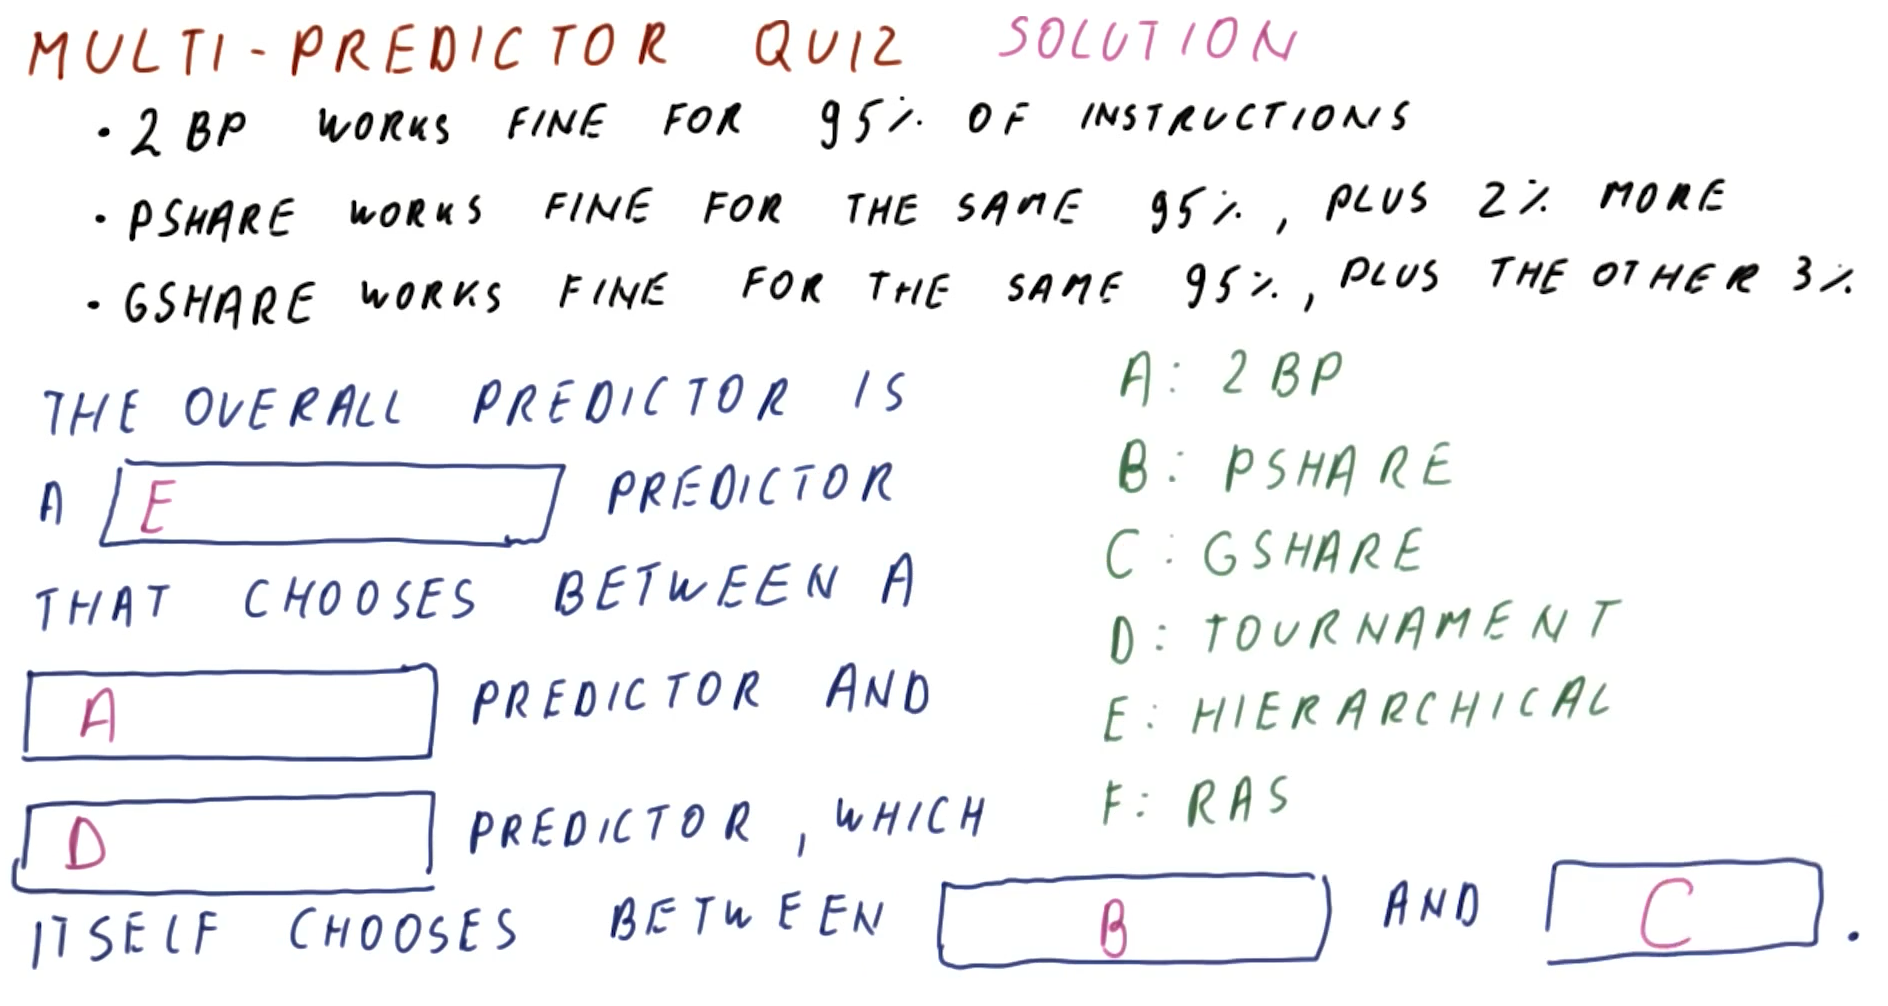 MULTI-PREDICTOR QUIZ SOLUTION
• 2BP WORKS FINE FOR 95% OF INSTRUCTIONS
• PSHARE WORKS FINE FOR THE SAME 95%, PLUS 2% MORE
• GSHARE WORKS FINE FOR THE SAME 95%, PLUS THE OTHER 3%
THE OVERALL PREDICTOR IS
A E PREDICTOR
THAT CHOOSES BETWEEN A
A PREDICTOR AND
D PREDICTOR, WHICH
ITSELF CHOOSES BETWEEN B AND C.
A: 2BP
B: PSHARE
C: GSHARE
D: TOURNAMENT
E: HIERARCHICAL
F: RAS